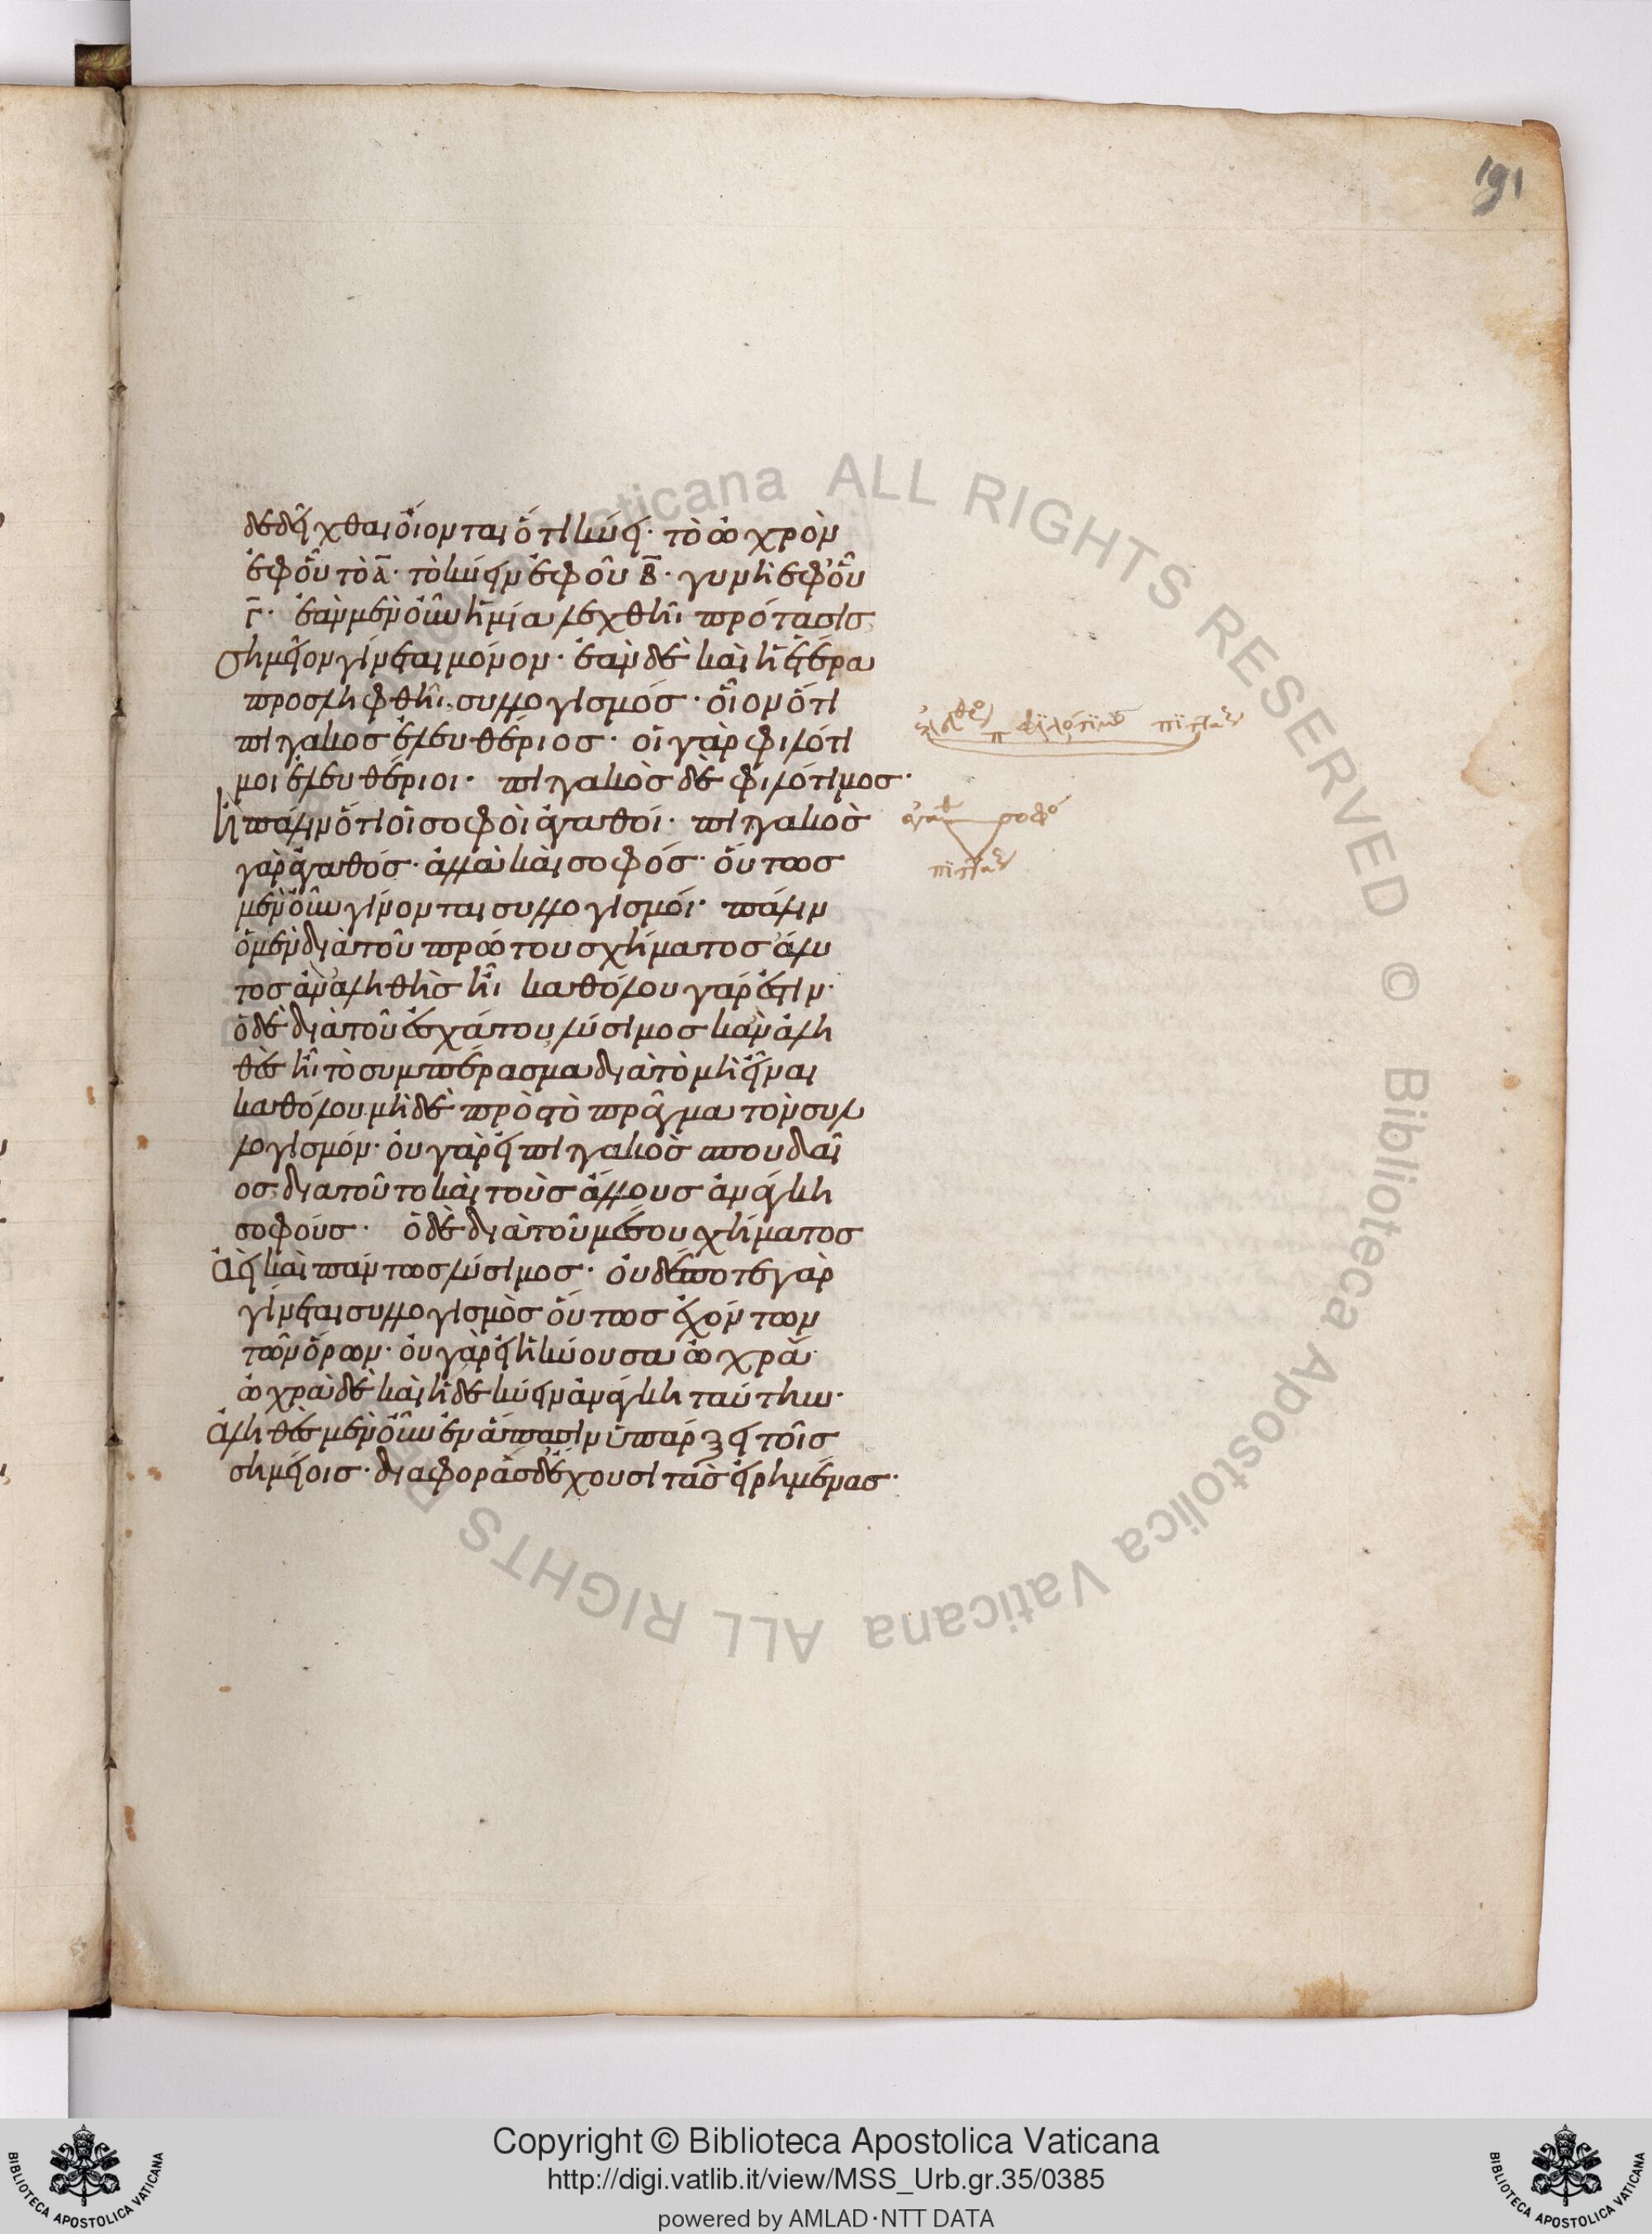 191
δεδεῖχθαι οἴονται ὅτι κύει· τὸ ὠχρὸν
ἐφ οὗ τὸ Α· τὸ κύειν ἐφ οὗ Β· γυνὴ ἐφ οὗ
Γ· ἐὰν μὲν οὖν ἡ μία λεχθῆι πρότασις
σημεῖον γίνεται μόνον· ἐὰν δὲ καὶ ἡ ἑτέρα
προσληφθῆι συλλογισμός· οἷον ὅτι
πιττακος ἐλευθέριος· οἱ γὰρ φιλότι
μοι ἐλευθέριοι· πιττακὸς δὲ φιλότιμος·
ἢ πάλιν ὅτι οἱ σοφοὶ ἀγαθοί· πιττακὸς
γὰρ ἀγαθός· ἀλλὰ καὶ σοφός· οὕτως
μὲν οὖν γίνονται συλλογισμοί· πάλιν
ὁ μὲν διὰ τοῦ πρώτου σχήματος ἄλυ
τος ἂν ἀληθὴς ἦι καθόλου γάρ ἐστιν·
ὁ δὲ διὰ τοῦ ἐσχάτου λύσιμος κἂν ἀλη
θὲς ἦι τὸ συμπέρασμα διὰ τὸ μὴ εἶναι
καθόλου μὴδὲ πρὸς τὸ πρᾶγμα τὸν συλ
λογισμόν· οὐ γὰρ εἰ πιττακὸς σπουδαῖ
ος διατοῦτο καὶ τοὺς ἄλλους ἀνάγκη
σοφούς· ὁ δὲ διὰ τοῦ μέσου σχήματος
ἀεὶ καὶ πάντως λύσιμος· οὐδέποτε γὰρ
γίνεται συλλογισμὸς οὕτως ἐχόντων
τῶν ὅρων· οὐ γὰρ εἰ ἡ κύουσα ὠχρά·
ὠχρὰ δὲ καὶ ἥδε κύειν ἀνάγκη ταύτην·
ἀληθὲς μὲν οὖν ἐν ἅπασιν ὑπάρξει τοῖς
σημείοις· διαφορὰς δ ἔχουσι τὰς εἰρημένας·
Copyright © Biblioteca Apostolica Vaticana
http://digi.vatlib.it/view/MSS_Urb.gr.35/0385
powered by AMLAD·NTT DATA
BIBLIOTECA APOSTOLICA VATICANA
BIBLIOTECA APOSTOLICA VATICANA
© Biblioteca Apostolica Vaticana ALL RIGHTS RESERVED © Biblioteca Apostolica Vaticana ALL RIGHTS RESERVED